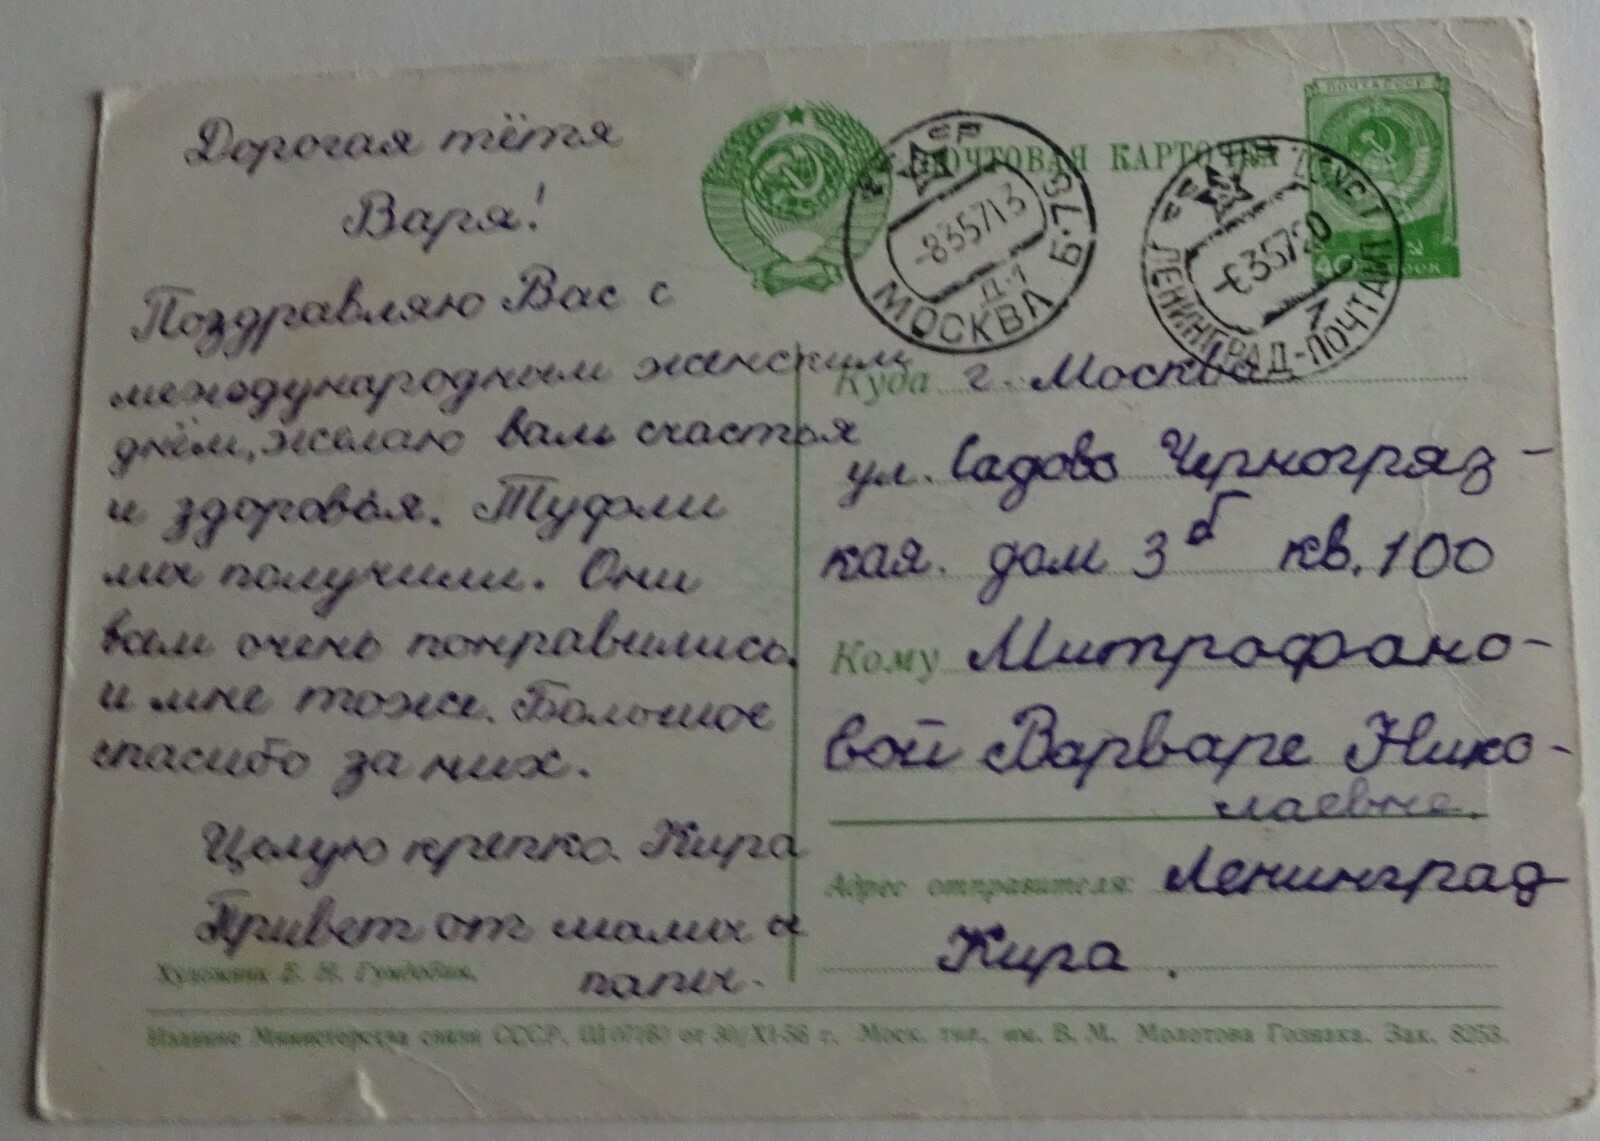 Дорогая тётя
Варя!
Поздравляю Вас с
международным женским
днём, желаю вам счастья
и здоровья. Туфли
мы получили. Они
вам очень понравились,
и мне тоже. Большое
спасибо за них.
Целую крепко. Кира
Привет от мамы и
папы.
Художник Е. Н. Гундобин.
ПОЧТОВАЯ КАРТОЧКА
ПОЧТА СССР
40
МОСКВА Б-73
Д-1
-835713
ЛЕНИНГРАД-ПОЧТАМТ
35720
Куда г. Москва
ул. Садово Черногряз-
кая. дом 3б кв. 100
Кому Митрофано-
вой Варваре Нико-
лаевне.
Адрес отправителя: Ленинград
Кира.
Издание Министерства связи СССР. Ш07160 от 30/XI-56 г. Моск. тип. им. В. М. Молотова Гознака. Зак. 8253.